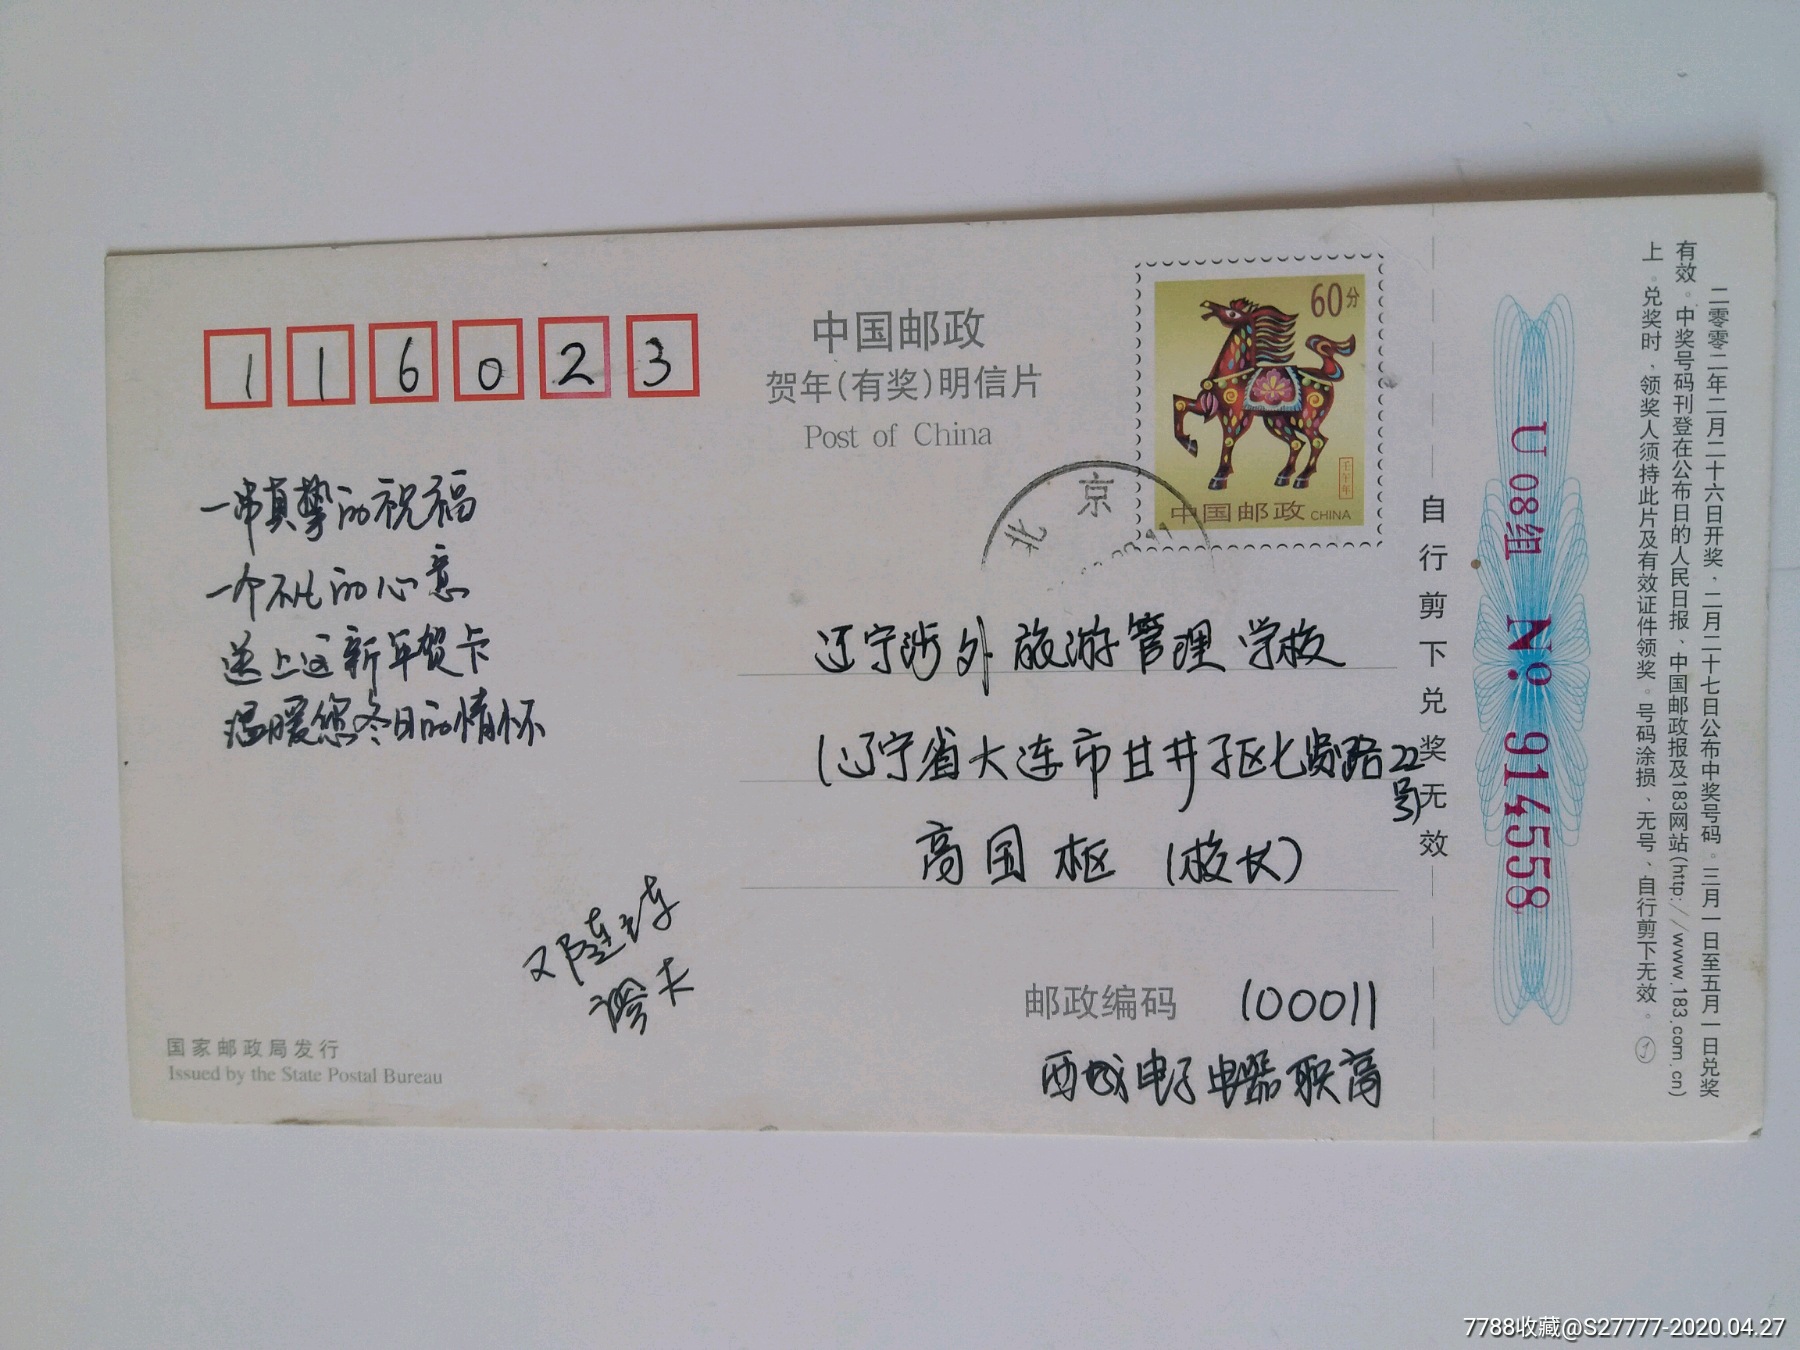 116023
中国邮政
贺年(有奖)明信片
Post of China
60分
壬午年
中国邮政 CHINA
北京
一串真挚的祝福
一个不化的心意
送上这新年贺卡
温暖您冬日的情怀
辽宁涉外旅游管理学校
(辽宁省大连市甘井子区七贤路22号)
高国枢 (校长)
邮政编码 100011
西城电子电器职高
国家邮政局发行
Issued by the State Postal Bureau
自行剪下兑奖无效
U 08组 No 914558
二零零二年二月二十六日开奖，二月二十七日公布中奖号码。三月一日至五月一日兑奖
有效。中奖号码刊登在公布日的人民日报、中国邮政报及183网站(http://www.183.com.cn)
上。兑奖时，领奖人须持此片及有效证件领奖。号码涂损、无号、自行剪下无效。
7788收藏@S27777-2020.04.27